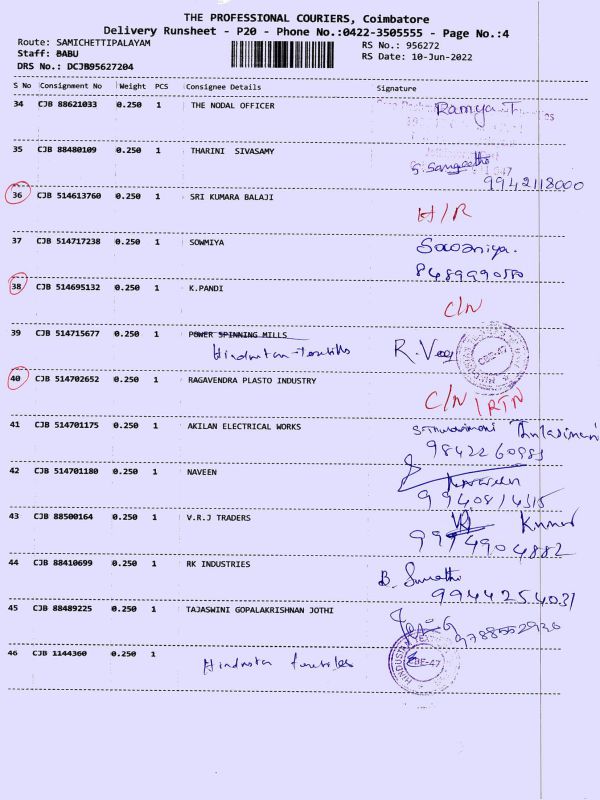 THE PROFESSIONAL COURIERS, Coimbatore
Delivery Runsheet - P20 - Phone No.:0422-3505555 - Page No.:4
Route: SAMICHETTIPALAYAM RS No.: 956272
Staff: BABU RS Date: 10-Jun-2022
DRS No.: DCJB95627204
S No Consignment No Weight PCS Consignee Details Signature
34 CJB 88621033 0.250 1 THE NODAL OFFICER Ramya T
35 CJB 88480109 0.250 1 THARINI SIVASAMY S. Sangeetha
9942118000
36 CJB 514613760 0.250 1 SRI KUMARA BALAJI H/R
37 CJB 514717238 0.250 1 SOWMIYA
8489990580
38 CJB 514695132 0.250 1 K.PANDI C/N
39 CJB 514715677 0.250 1 POWER SPINNING MILLS
Hindustan Textiles R.
CBE-47
40 CJB 514702652 0.250 1 RAGAVENDRA PLASTO INDUSTRY C/N / RTN
41 CJB 514701175 0.250 1 AKILAN ELECTRICAL WORKS
9842260983
42 CJB 514701180 0.250 1 NAVEEN Naveen
9940814315
43 CJB 88500164 0.250 1 V.R.J TRADERS Kumar
9974904882
44 CJB 88410699 0.250 1 RK INDUSTRIES B. Sumathi
9944254031
45 CJB 88489225 0.250 1 TAJASWINI GOPALAKRISHNAN JOTHI
9788552930
46 CJB 1144360 0.250 1 Hindustan Textiles CBE-47